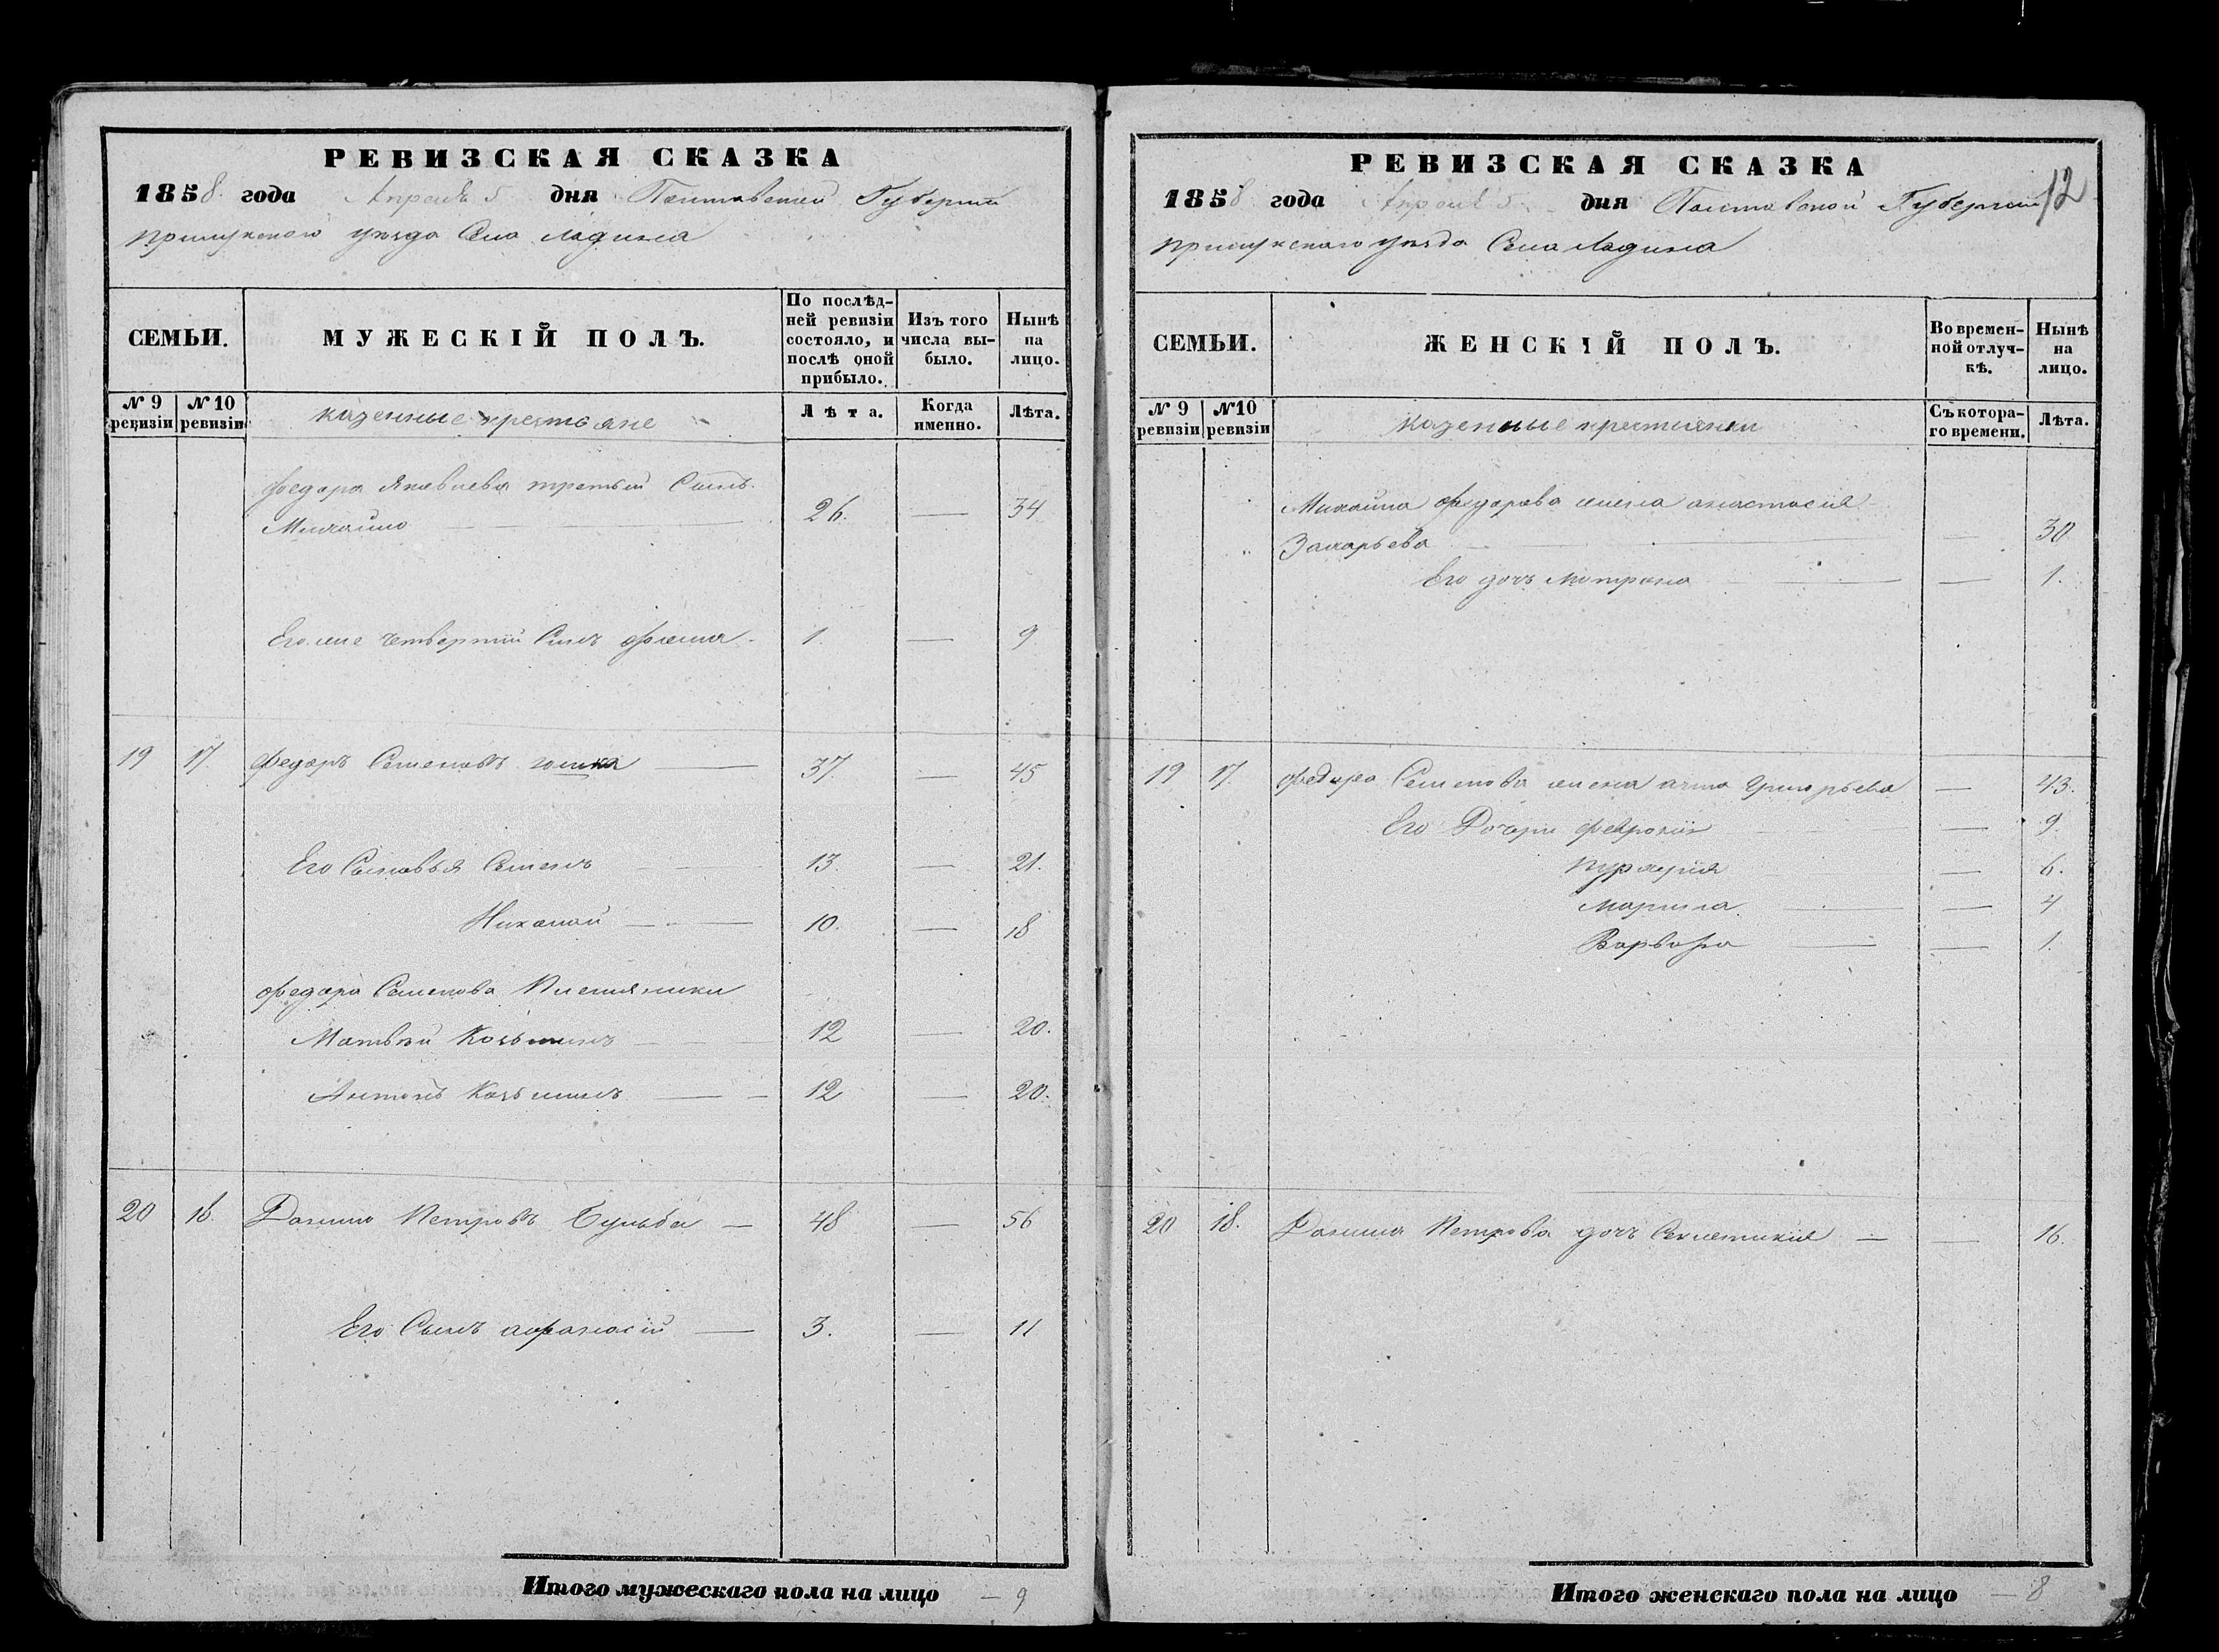 РЕВИЗСКАЯ СКАЗКА
1858. года Апреля 5 дня Полтавской Губернии
прилукского уезда Села Ладина
СЕМЬИ.
МУЖЕСКІЙ ПОЛЪ.
По послѣд-
ней ревизіи
состояло, и
послѣ оной
прибыло.
Изъ того
числа вы-
было.
Нынѣ
на
лицо.
№ 9
ревизіи
№ 10
ревизіи
казенные крестьяне
Лѣта.
Когда
именно.
Лѣта.
Федора Яковлева третьй Сынъ
Михайло — 26. — 34
Его же четвертий Синъ Фома 1. — 9
19 17. Федоръ Семеновъ — 37. — 45
Его Сыновья Семенъ — 13. — 21.
Николай — 10. — 18
Федора Семенова Племяники
Матвѣй Козьминъ — 12 — 20.
Антонъ Козьминъ — 12 — 20.
20 18. Данило Петровъ Бульба — 48 — 56
Его Сынъ Афанасій — 3. — 11
Итого мужескаго пола на лицо — 9
РЕВИЗСКАЯ СКАЗКА
12
1858 года Апреля 5 дня Полтавской Губернии
прилукскаго уезда Села Ладина
СЕМЬИ.
ЖЕНСКІЙ ПОЛЪ.
Во времен-
ной отлуч-
кѣ.
Нынѣ
на
лицо.
№ 9
ревизіи
№10
ревизіи
казенные крестьянки
Съ котора-
го времени.
Лѣта.
Михайла Федорова жена анастасия
Захарьева — — 30
Его дочь Мотрона — — 1.
19 17. Федора Семенова жена анна Григорьева — 43.
Его Дочери Феврония — 9.
Пулхерия — 6.
Марина — — 4
Варвара — — 1.
20 18. Данила Петрова дочь Секлетикия — — 16.
Итого женскаго пола на лицо — 8